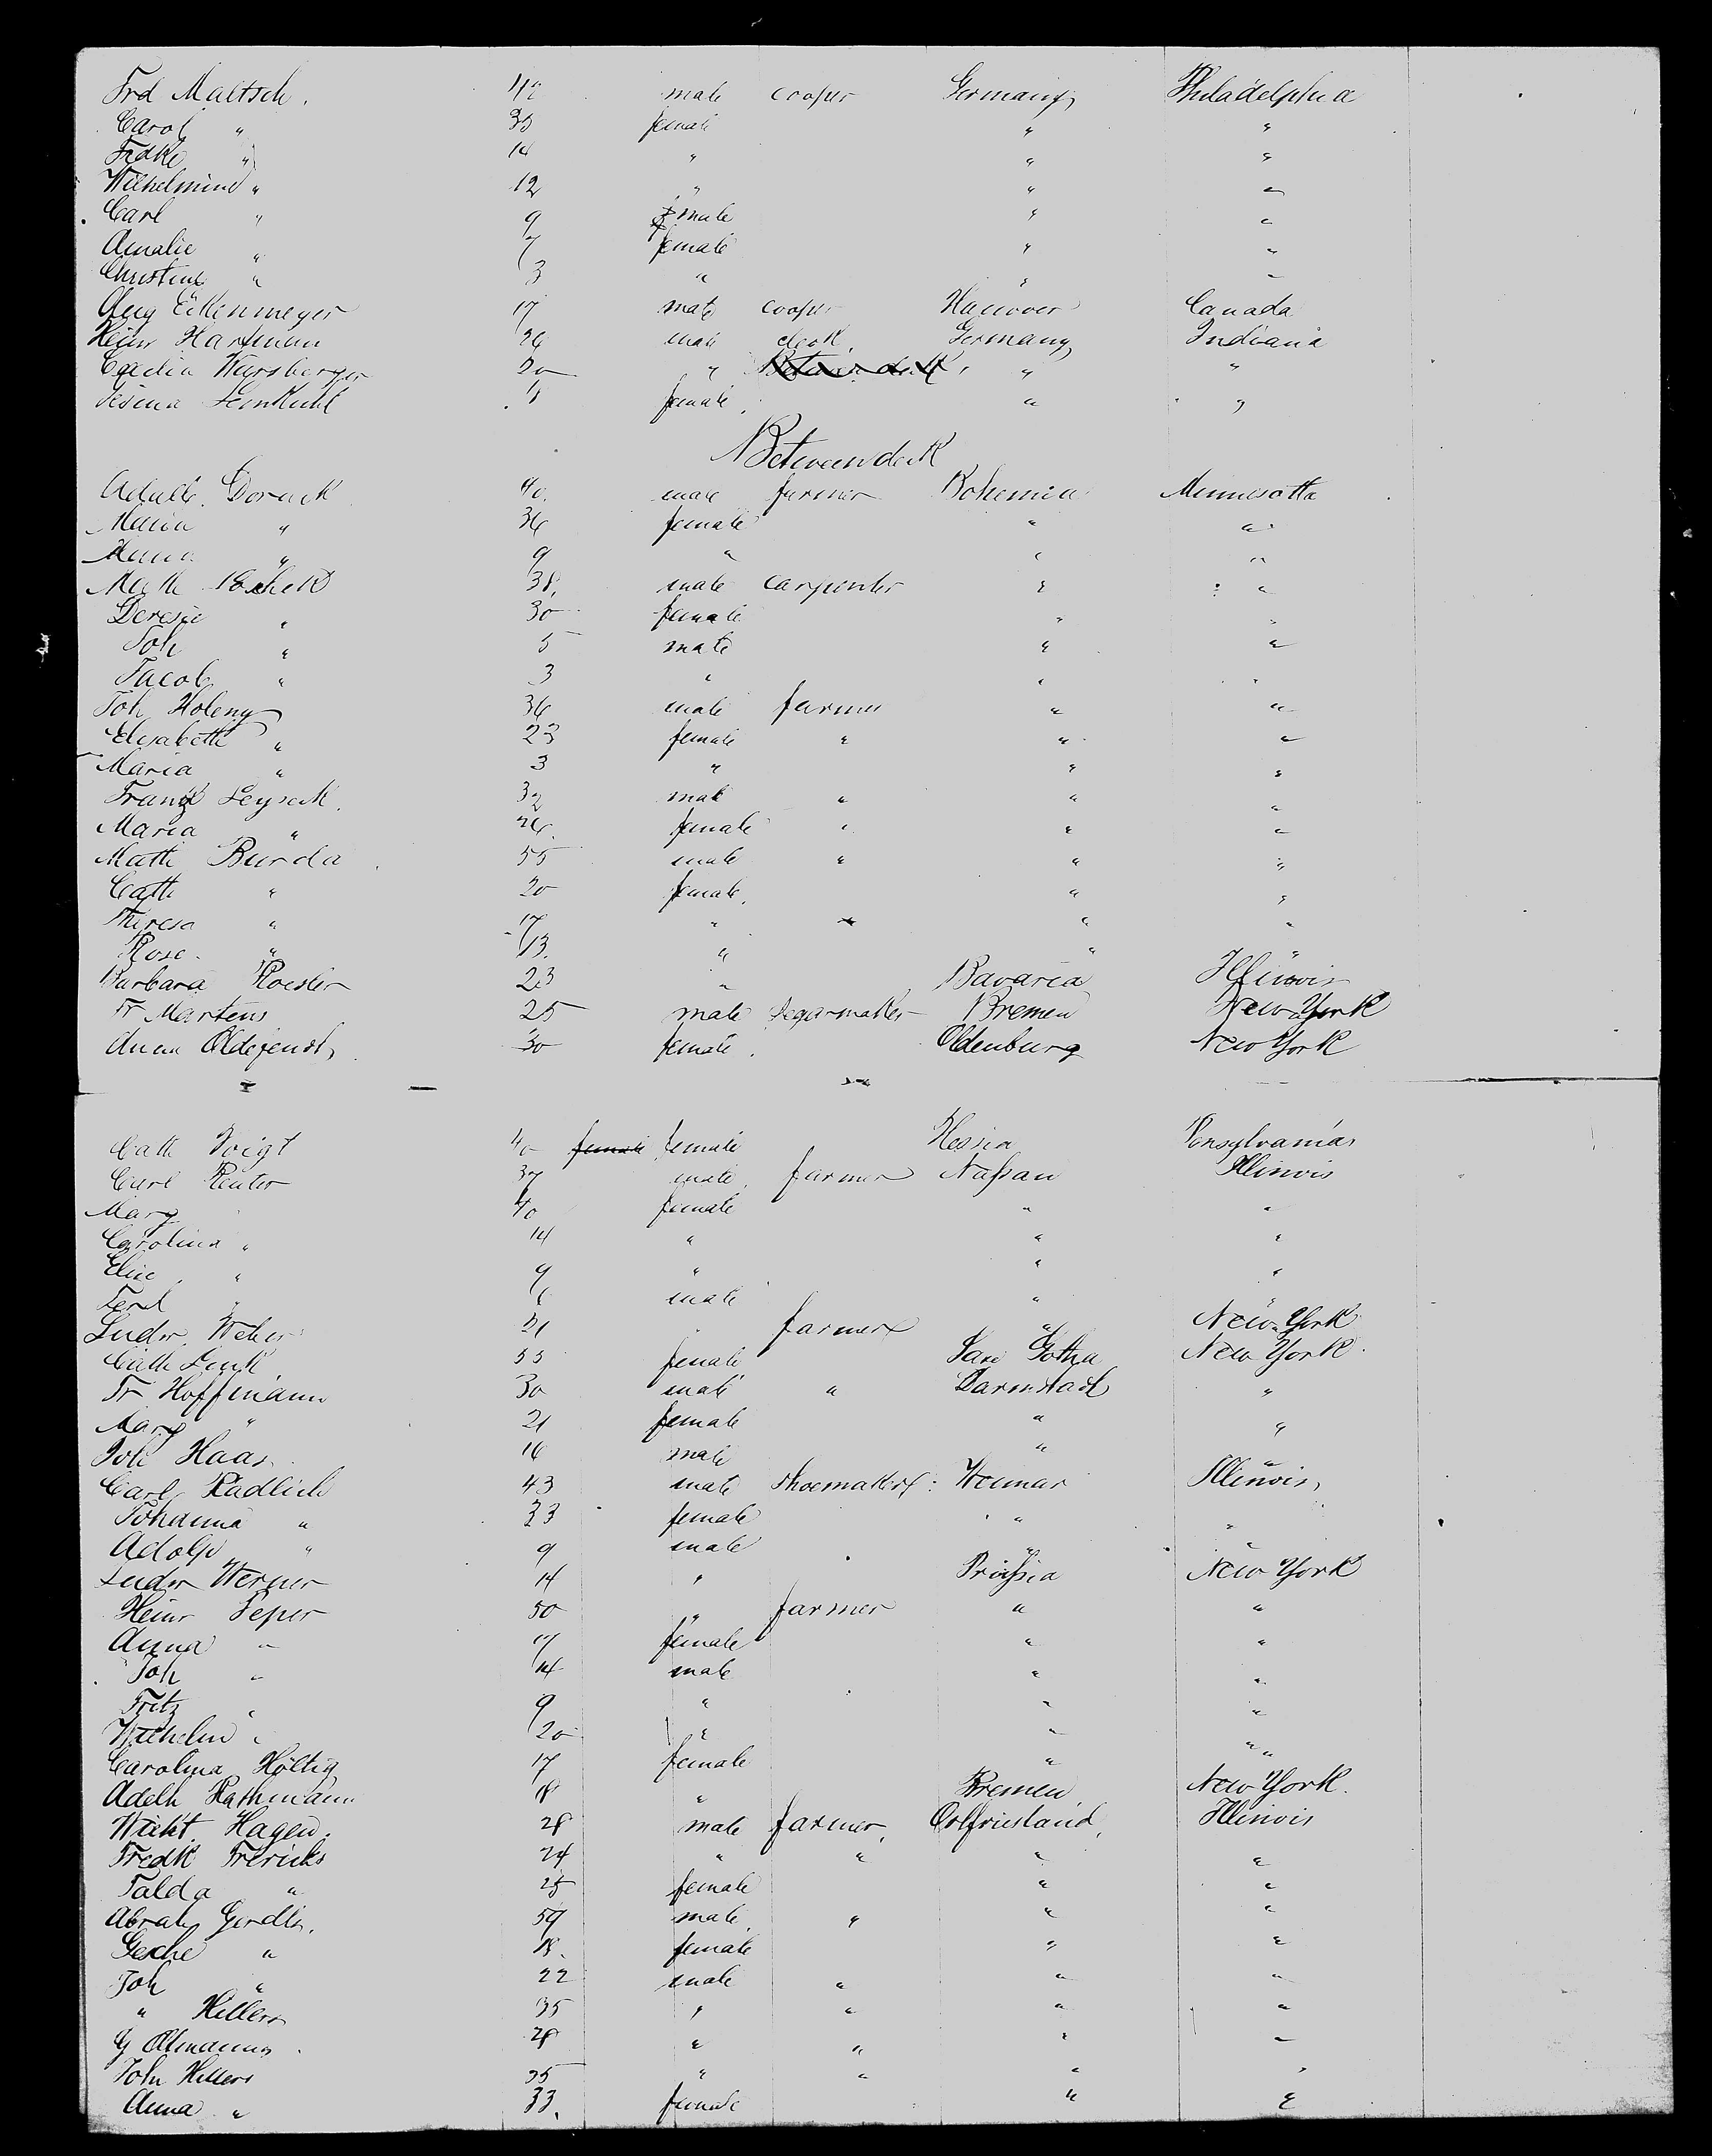 Frd Maltsch. 42 male cooper Germany Philadelphia
Carol " 35 female " "
Fridke " 14 " " "
Wilhelmine " 12 " " "
Carl " 9 male " "
Amalie " 7 female " "
Christine " 3 " " "
Aug Eikenmeyer 17 male cooper Hanover Canada
Heinr Hartman 26 male clerk Germany Indiana
Caecilia Warsberger 20 " Between deck " "
Gesina Lemkuhl female " "
Betweendeck
Dorack 40 male farmer Bohemia Minnesotta
Maria " 36 female " "
Anna " 9 " " "
Math 38 male carpenter " "
Deresie " 30 female " "
Joh " 5 male " "
Jacob " 3 " " "
Joh Holeny 36 male farmer " "
Elisabeth " 23 female " " "
Maria " 3 " " "
Franz Leyseck 32 male " " "
Maria " 26 female " " "
Math Burda 55 male " " "
Cath " 20 female " "
Theresa " 17 " " "
Rose " 13 " " "
Barbara Roesler 23 " Bavaria Illinois
Fr Martens 25 male segarmaker Bremen New York
Anna Oldejendt 30 female Oldenburg New York
Cath Voigt 40 female female Hessia Pensylvania
Carl Reuter 37 male farmer Nassau Illinois
Marg 40 female " "
Carolina " 14 " " "
Elise " 9 " " "
Ferd " 6 male " "
Ludw Weber 21 farmer " New York
Cath Link 55 female Saxe Gotha New York
Fr Hoffmann 30 male " Darmstadt "
Marg " 21 female " "
Joh Haas 16 male " "
Carl Radlich 43 male shoemaker Weimar Illinois
Johanna " 33 female " "
Adolf " 9 male " "
Ludw Werner 14 " Prussia New York
Heinr Peper 50 " farmer " "
Anna " 17 female " "
Joh " 14 male " "
Fritz " 9 " " "
Wilhelm " 20 " " "
Carolina Höltig 17 female " "
Adelh Rathmann 18 " Bremen New York
Hagen 28 male farmer Ostfriesland Illinois
Fredk Frerichs 24 " " " "
Talda " 25 female " "
Abrah Gerdes 59 male " " "
Gesche " 18 female " "
Joh " 22 male " " "
" Hillers 35 " " " "
G Oltmanns 28 " " " "
John Hillers 35 " " " "
Anna " 33 female " "